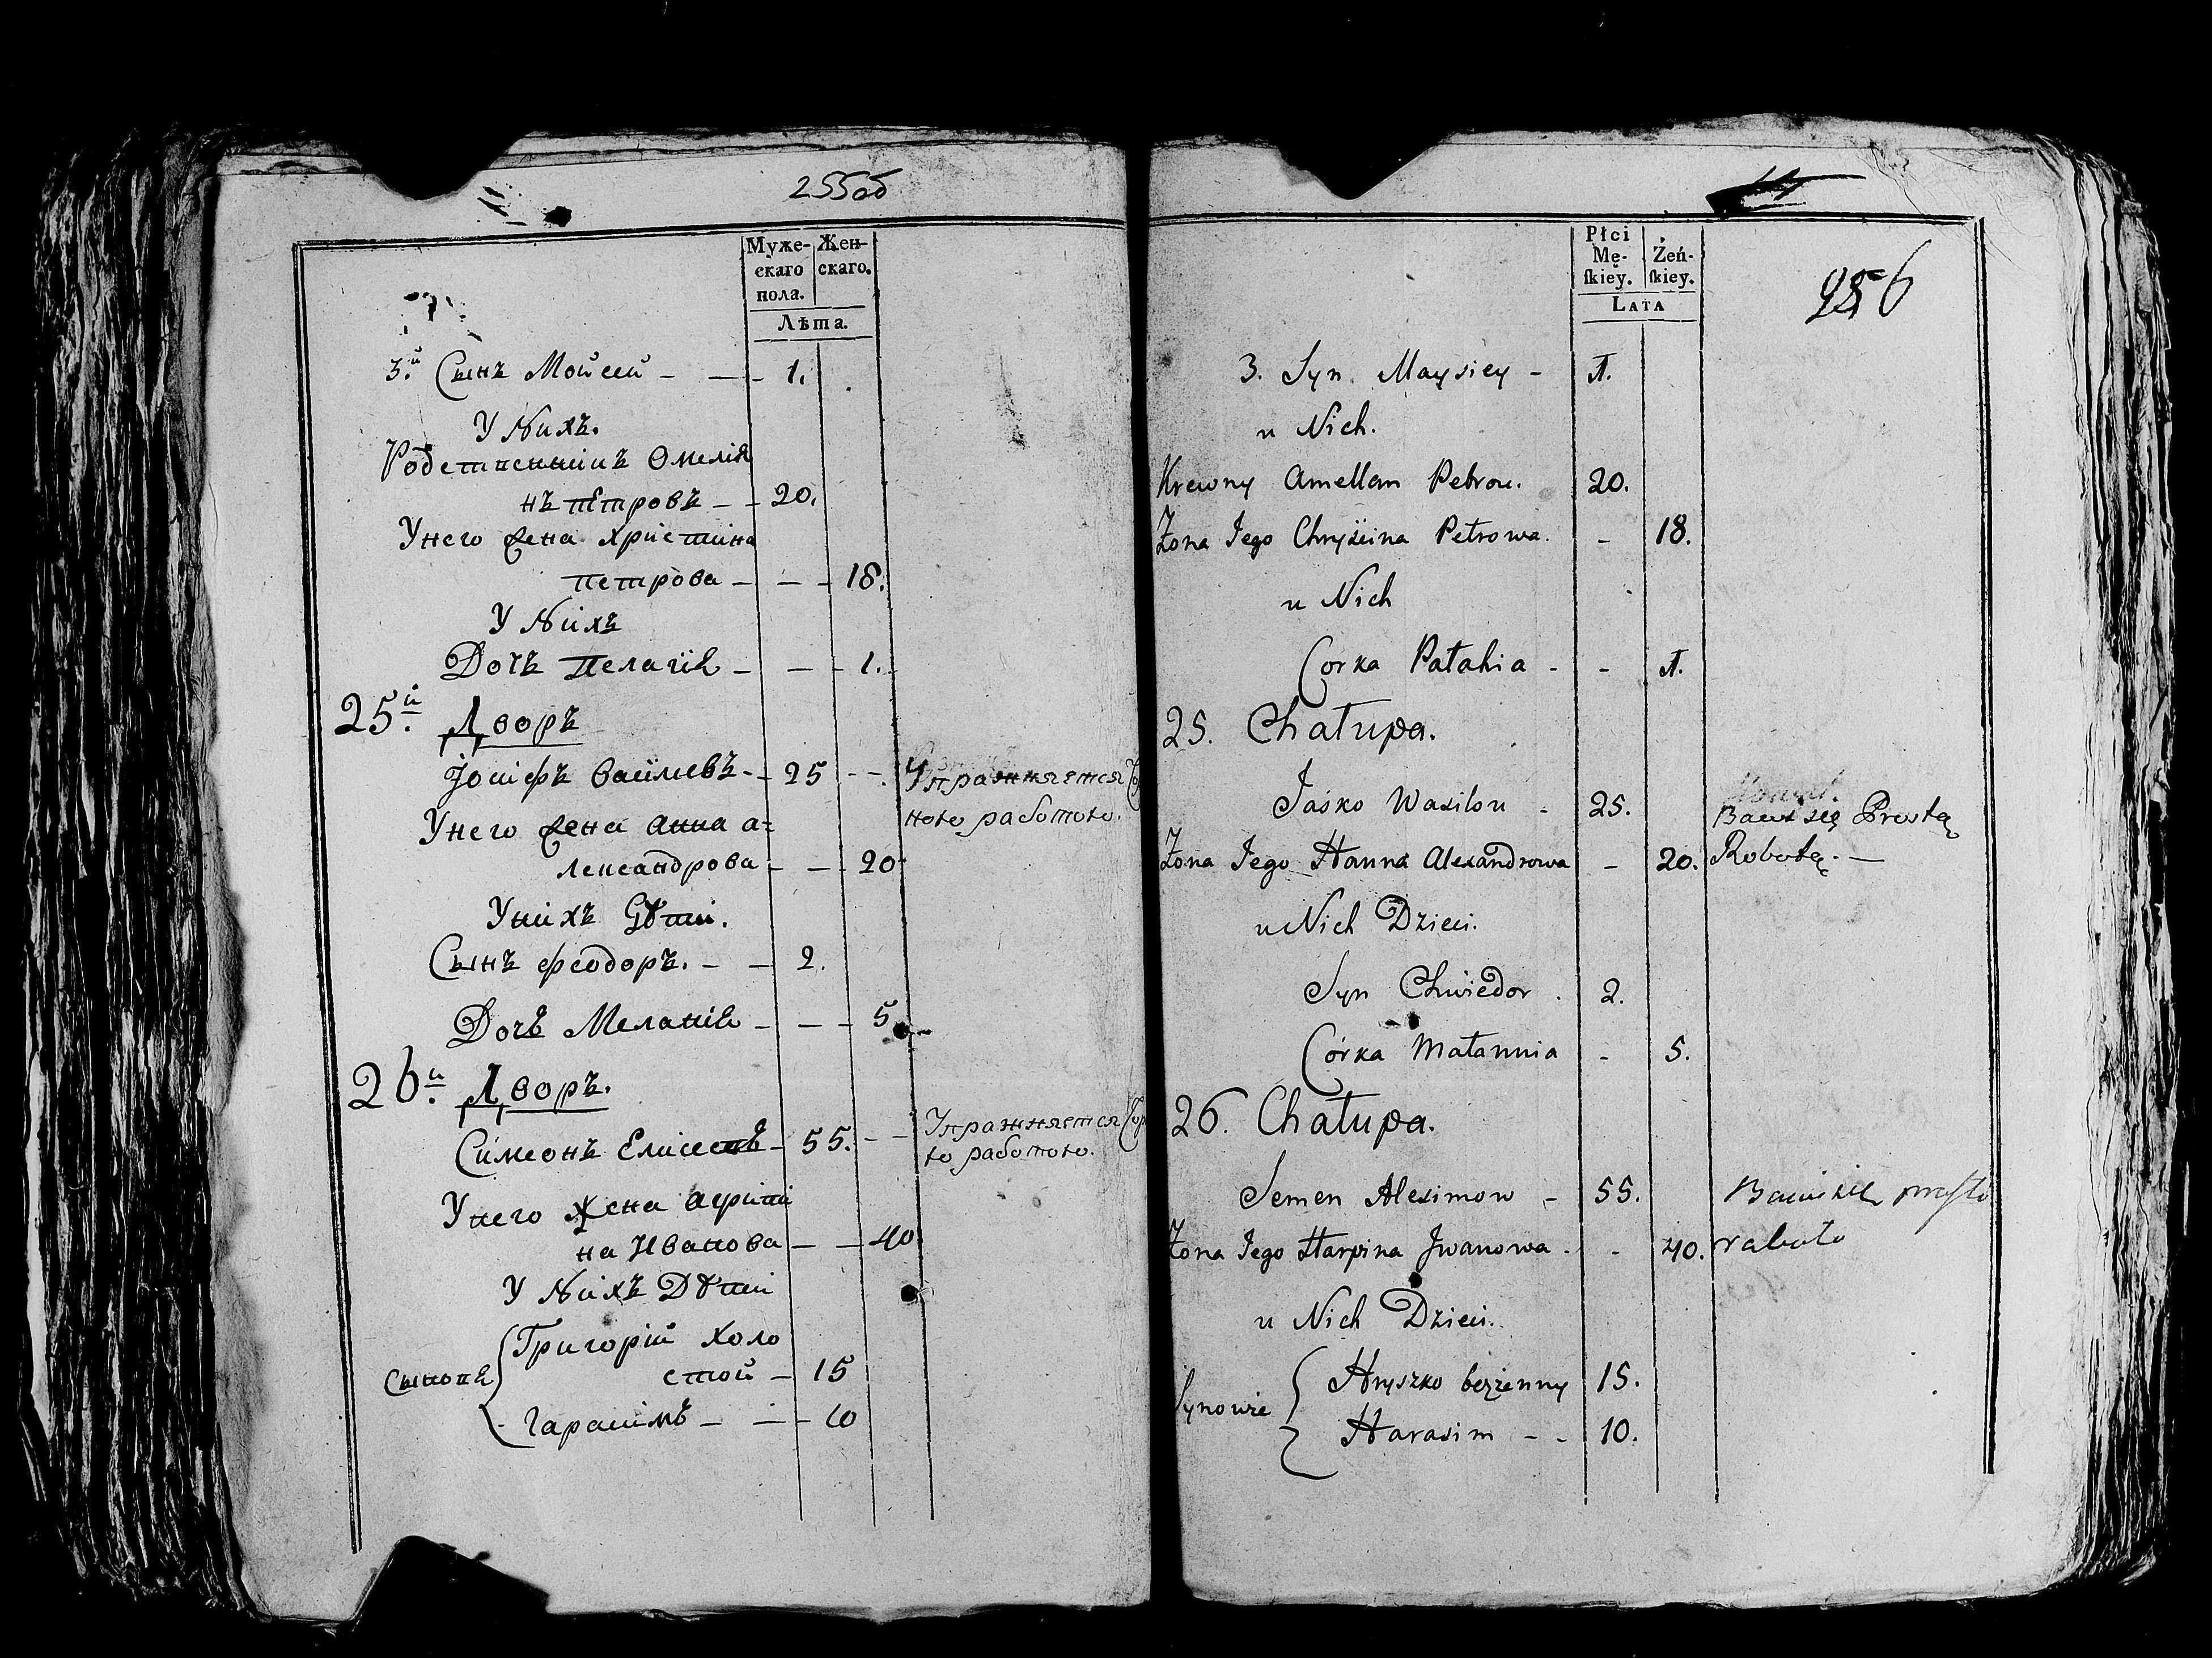 255об
Муже- Жен-
скаго скаго.
пола.
Лѣта.
3.й Сынъ Мойсей - - - 1.
У Нихъ.
Родственникъ Омелія
нъ Петровъ - - 20.
Унего жена Христина
Петрова - - - 18.
У Нихъ
Дочь Пелагія - - - 1.
25.й Дворъ
Іосифъ Васильевъ - - 25 - - Упражняется
ною работою.
Унего жена Анна А=
лександрова - - - 20
Унихъ Дѣти.
Сынъ Феодоръ. - - 2.
Дочь Меланія - - - 5
26.й Дворъ.
Симеонъ - 55. - - Упражняется
ю работою.
Унего жена Агрипи
на Иванова - - 40
У Нихъ Дѣти
Григорій холо
Сыновя стой - 15
Гарасимъ - - - 10
Płci
Mę- Żeń-
ſkiey. ſkiey.
LATA
256
3. Syn Maysiey - 1.
u Nich.
Krewny Amellan Petrow. 20.
Zona Iego Chryśćina Petrowa. - 18.
u Nich
Corka Pałahia - - 1.
25. Chałupa.
Jaśko Wasilow - 25. Bawi się Prostą
Zona Iego Hanna Alexandrowa - 20. Robotą. -
u Nich Dzieci.
Syn Chwiedor . 2.
Córka Małannia - 5.
26. Chałupa.
Semen Aleximow - 55. Bawi się prosto
Zona Iego Harpina Jwanowa. - 40. raboto
u Nich Dzieci.
Synowie Hryszko bezżenny 15.
Harasim - - 10.